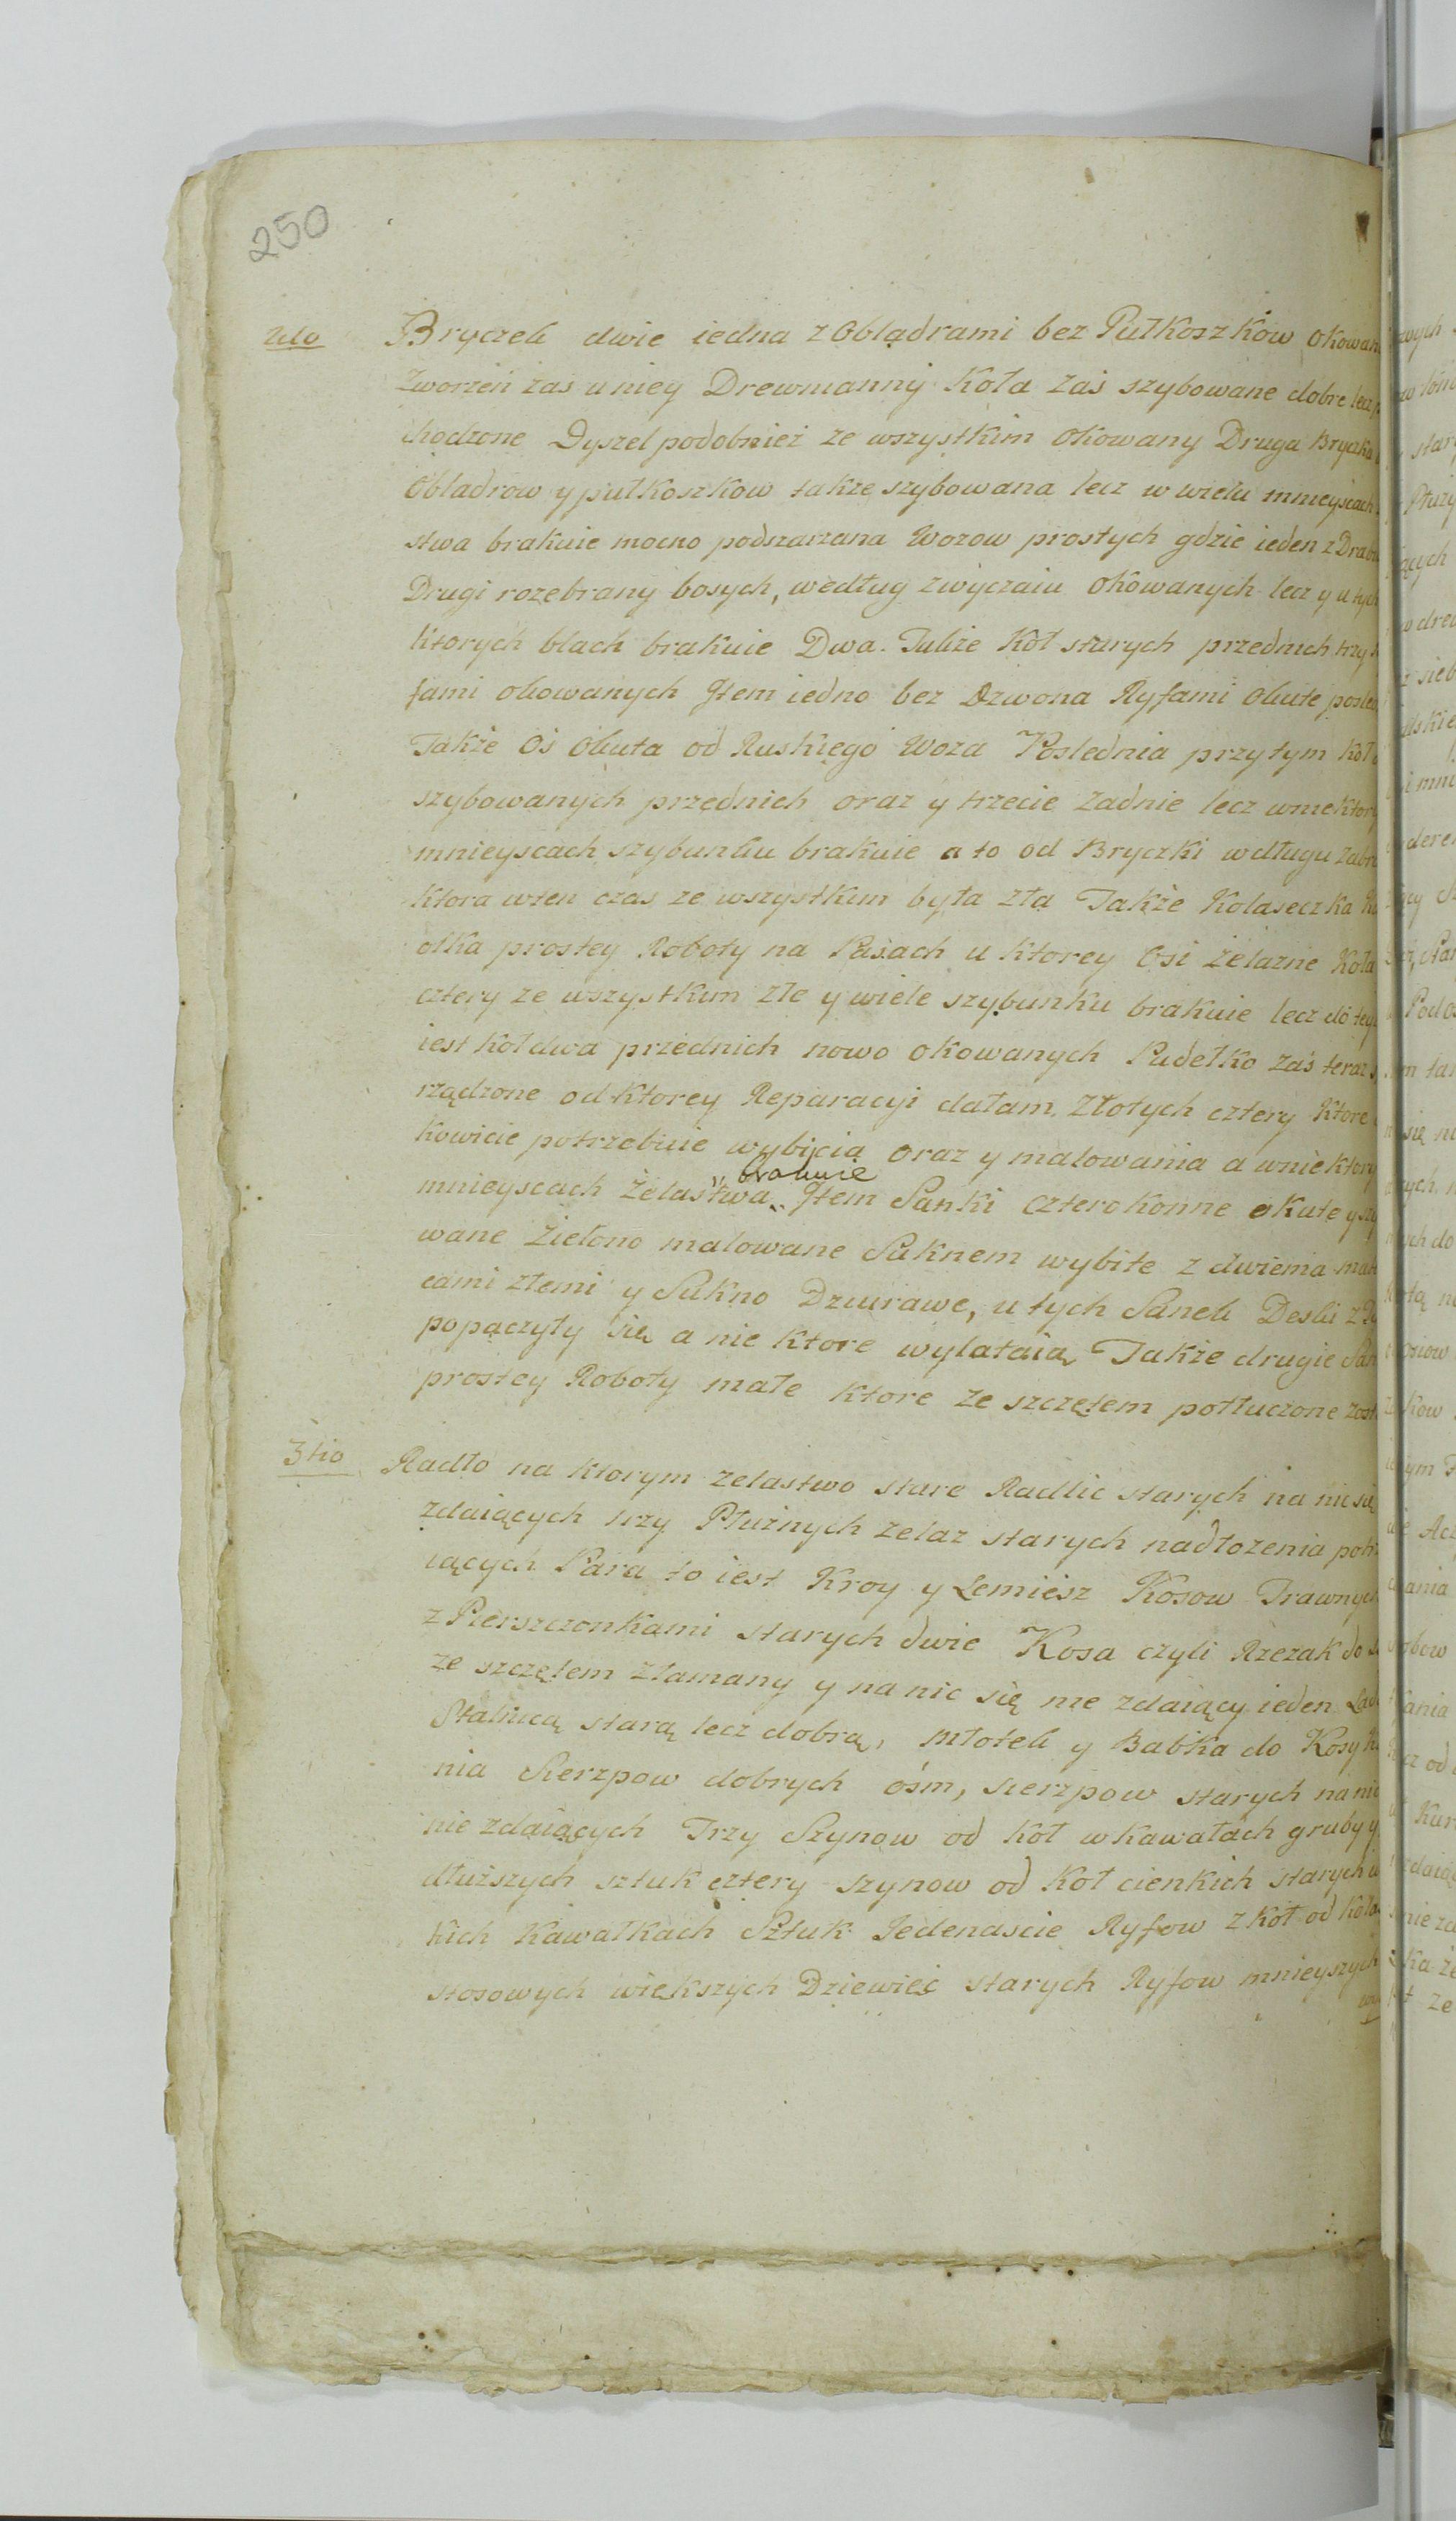 250
2do Bryczek dwie iedna z Obladrami bez Pułkoszków okowan
Zworzeń zaś u niey Drewnianny Koła zaś szybowane dobre lecz
chodzone Dyszel podobnież ze wszystkim okowany Druga Bryczka
Obladrow y pułkoszkow także szybowana lecz w wielu mnieyscach
stwa brakuie mocno podszarzana Wozow prostych gdzie ieden z Drab
Drugi rozebrany bosych, według zwyczaiu okowanych lecz y u tych
ktorych blach brakuie Dwa. Tudzież Koł starych przednich trzy
fami okowanych Jtem iedno bez Dzwona Ryfami okute posled
Także Oś okuta od Ruskiego Woza Poslednia przytym Koł
szybowanych przednich oraz y trzecie Zadnie lecz w niektory
mnieyscach szybunku brakuie a to od Bryczki w długu zabra
ktora w ten czas ze wszystkim była zła Także Kolaseczka
olka prostey Roboty na Pasach u ktorey Osi żelazne Koła
cztery ze wszystkim złe y wiele szybunku brakuie lecz do tey
iest koł dwa przednich nowo okowanych Pudełko zaś teraz
rządzone od ktorey Reparacyi dałam Złotych cztery ktore
kowicie potrzebuie wybicia oraz y malowania a w niektory
brakuie
mnieyscach żelastwa Jtem Sanki cztero konne okute y szy
wane Zielono malowane Suknem wybite z dwiema mat
cami złemi y Sukno Dziurawe, u tych Sanek Deski z
popaczyły się a nie ktore wylataią Także drugie San
prostey Roboty małe ktore ze szczętem potłuczone zost
3tio Radło na ktorym żelastwo stare Radlic starych na nic się
zdaiących trzy Płużnych żelaz starych nadłożenia potrz
iących Para to iest Kroy y Lemiesz Kosow Trawnych
z Pierszczonkami starych dwie Kosa czyli Rzezak do
ze szczętem złamany y na nic się nie zdaiący ieden
Stalnicą starą lecz dobrą, Młotek y Babka do Kosy
nia Sierzpow dobrych ośm, sierzpow starych na nic
nie zdaiących Trzy Szynow od koł w kawałach gruby y
dłuższych sztuk cztery szynow od Koł cienkich starych
kich Kawałkach Sztuk Jedenascie Ryfow z koł od Kola
stosowych większych Dziewięć starych Ryfow mnieyszych